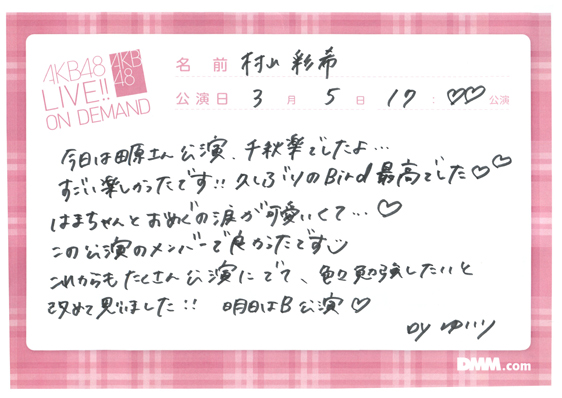 AKB48
LIVE!!
ON DEMAND
AKB
48
名 前 村山 彩希
公演日 3 月 5 日 17 : ♡♡ 公演
今日は田原さん公演、千秋楽でしたよ…
すごい楽しかったです!! 久しぶりのBird最高でした♡♡
はまちゃんとおめぐの涙が可愛いくて…♡
この公演のメンバーで良かったです
これからもたくさん公演にでて、色々勉強したいと
改めて思いました!! 明日はB公演♡
by ゆいり
DMM.com